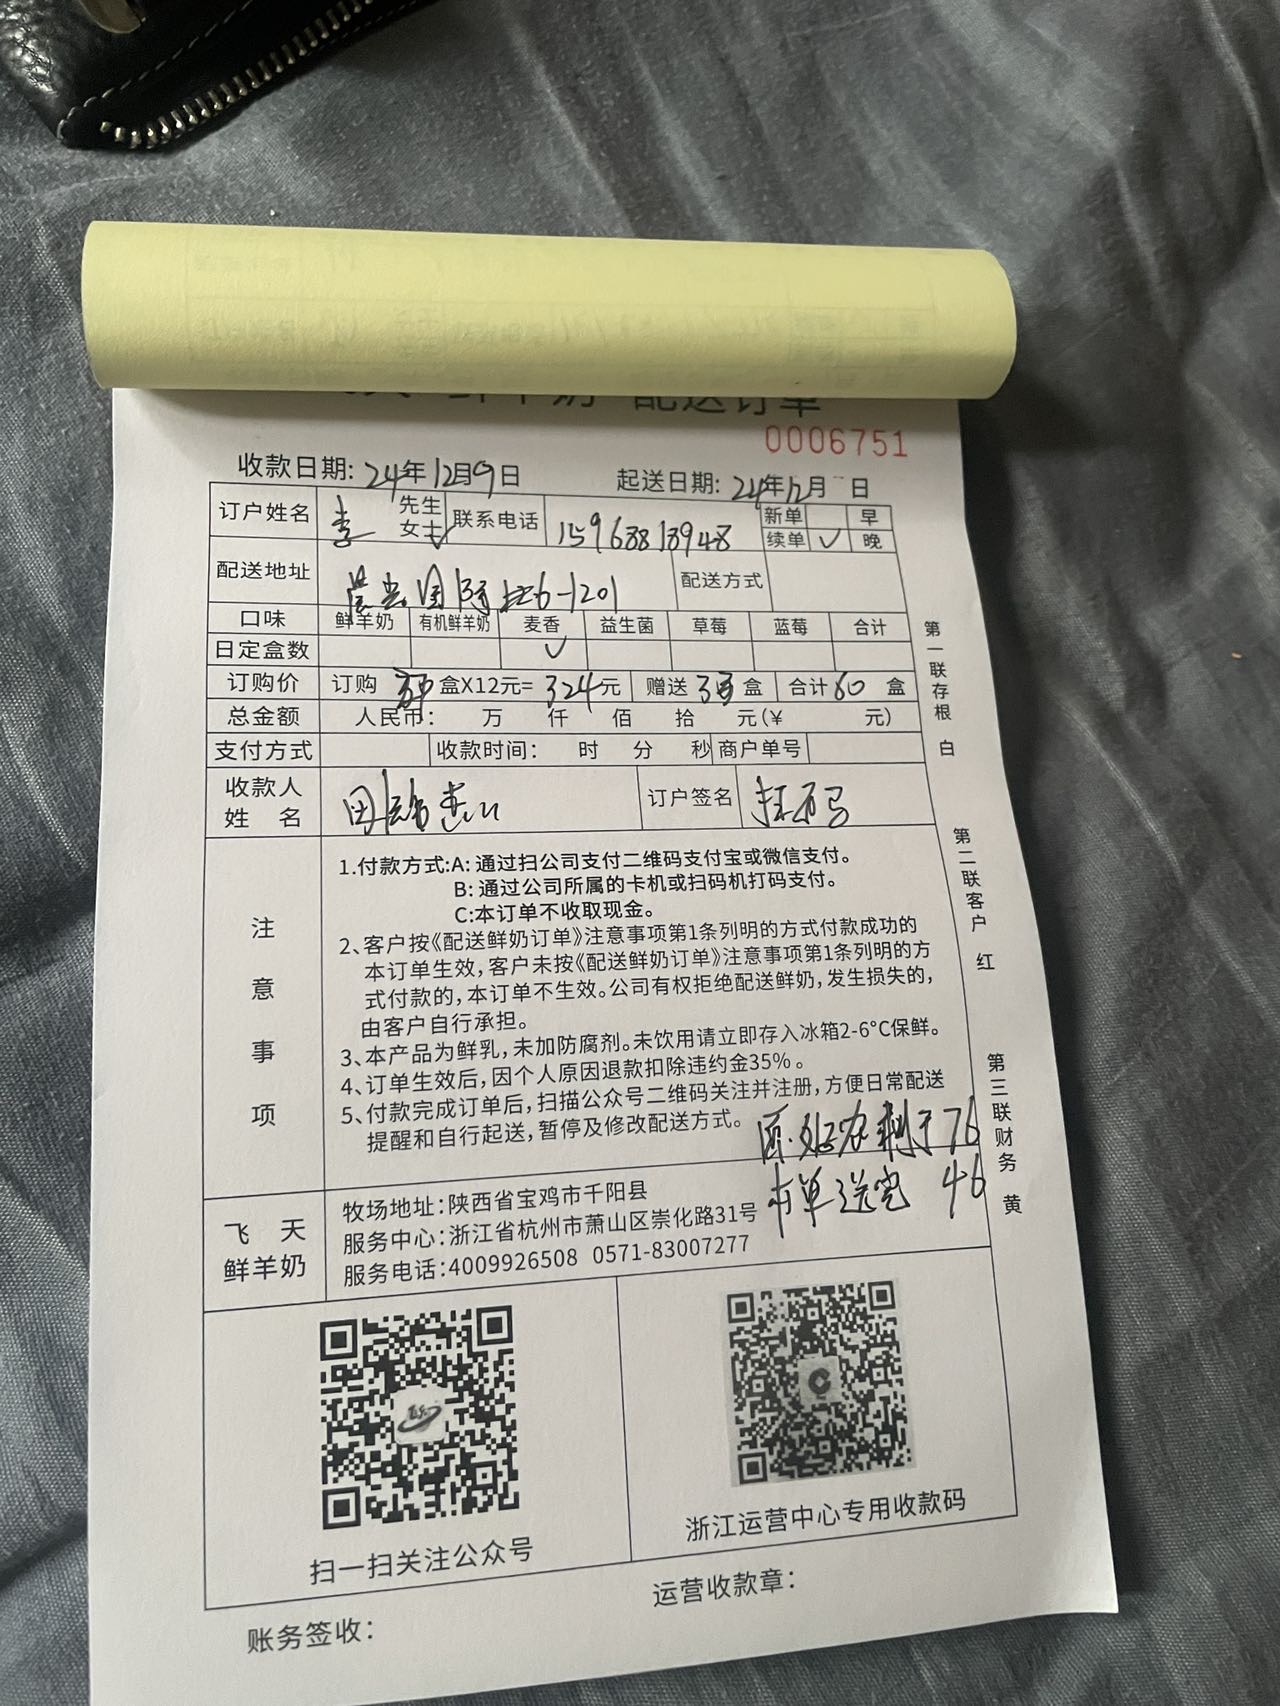 鲜羊奶 配送订单
0006751
收款日期: 24年12月9日 起送日期: 24年12月 日
订户姓名 李 先生 女士 ✓ 联系电话 15968813948 新单 早
续单 ✓ 晚
配送地址 国际 6-1201 配送方式
口味 鲜羊奶 有机鲜羊奶 麦香 益生菌 草莓 蓝莓 合计
日定盒数 ✓
订购价 订购 盒X12元= 324元 赠送 盒 合计 60 盒
总金额 人民币: 万 仟 佰 拾 元(¥ 元)
支付方式 收款时间: 时 分 秒 商户单号
收款人
姓 名 田 订户签名
注意事项
1.付款方式:A: 通过扫公司支付二维码支付宝或微信支付。
B: 通过公司所属的卡机或扫码机打码支付。
C:本订单不收取现金。
2、客户按《配送鲜奶订单》注意事项第1条列明的方式付款成功的
本订单生效,客户未按《配送鲜奶订单》注意事项第1条列明的方
式付款的,本订单不生效。公司有权拒绝配送鲜奶,发生损失的,
由客户自行承担。
3、本产品为鲜乳,未加防腐剂。未饮用请立即存入冰箱2-6°C保鲜。
4、订单生效后,因个人原因退款扣除违约金35%。
5、付款完成订单后,扫描公众号二维码关注并注册,方便日常配送
提醒和自行起送,暂停及修改配送方式。
剩于76
本单送完 46
飞 天
鲜羊奶
牧场地址:陕西省宝鸡市千阳县
服务中心:浙江省杭州市萧山区崇化路31号
服务电话:4009926508 0571-83007277
扫一扫关注公众号
浙江运营中心专用收款码
账务签收:
运营收款章:
第一联存根 白
第二联客户 红
第三联财务 黄